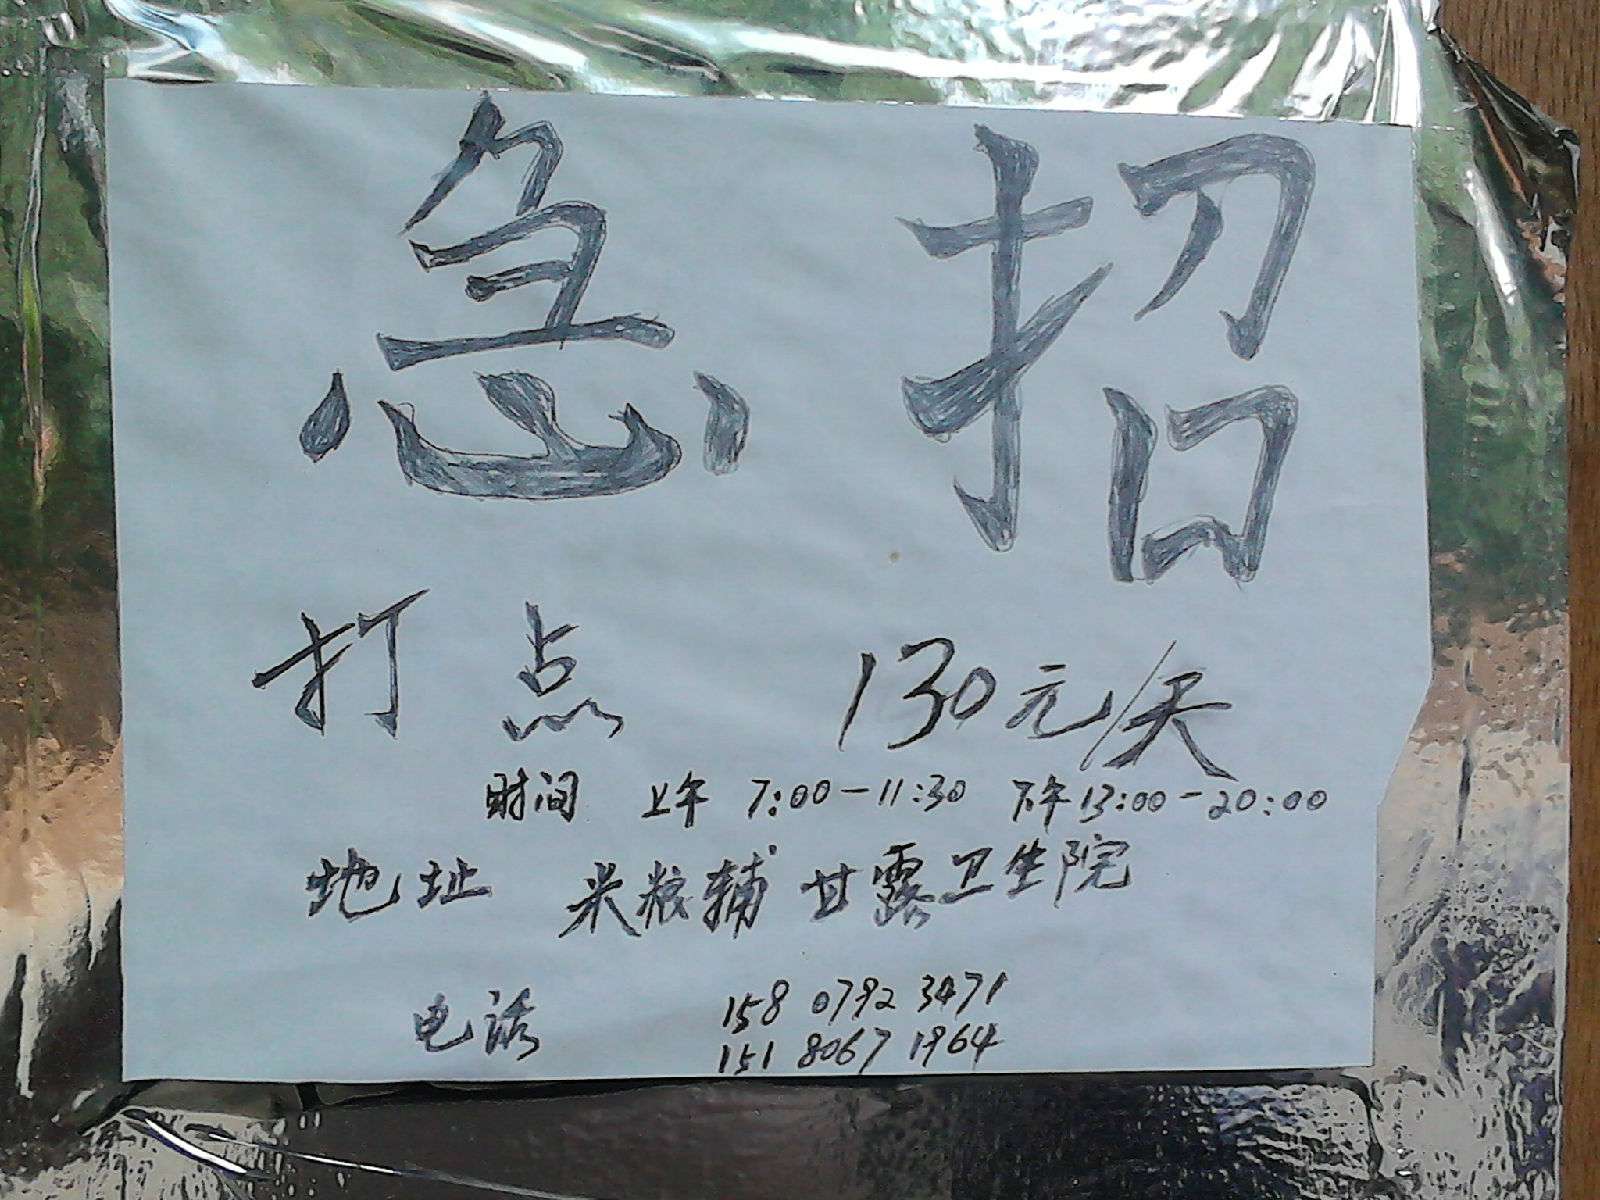 急招
打点 130元/天
时间 上午 7:00-11:30 下午 13:00-20:00
地址 米粮辅甘露卫生院
电话 158 0792 3471
151 8067 1964